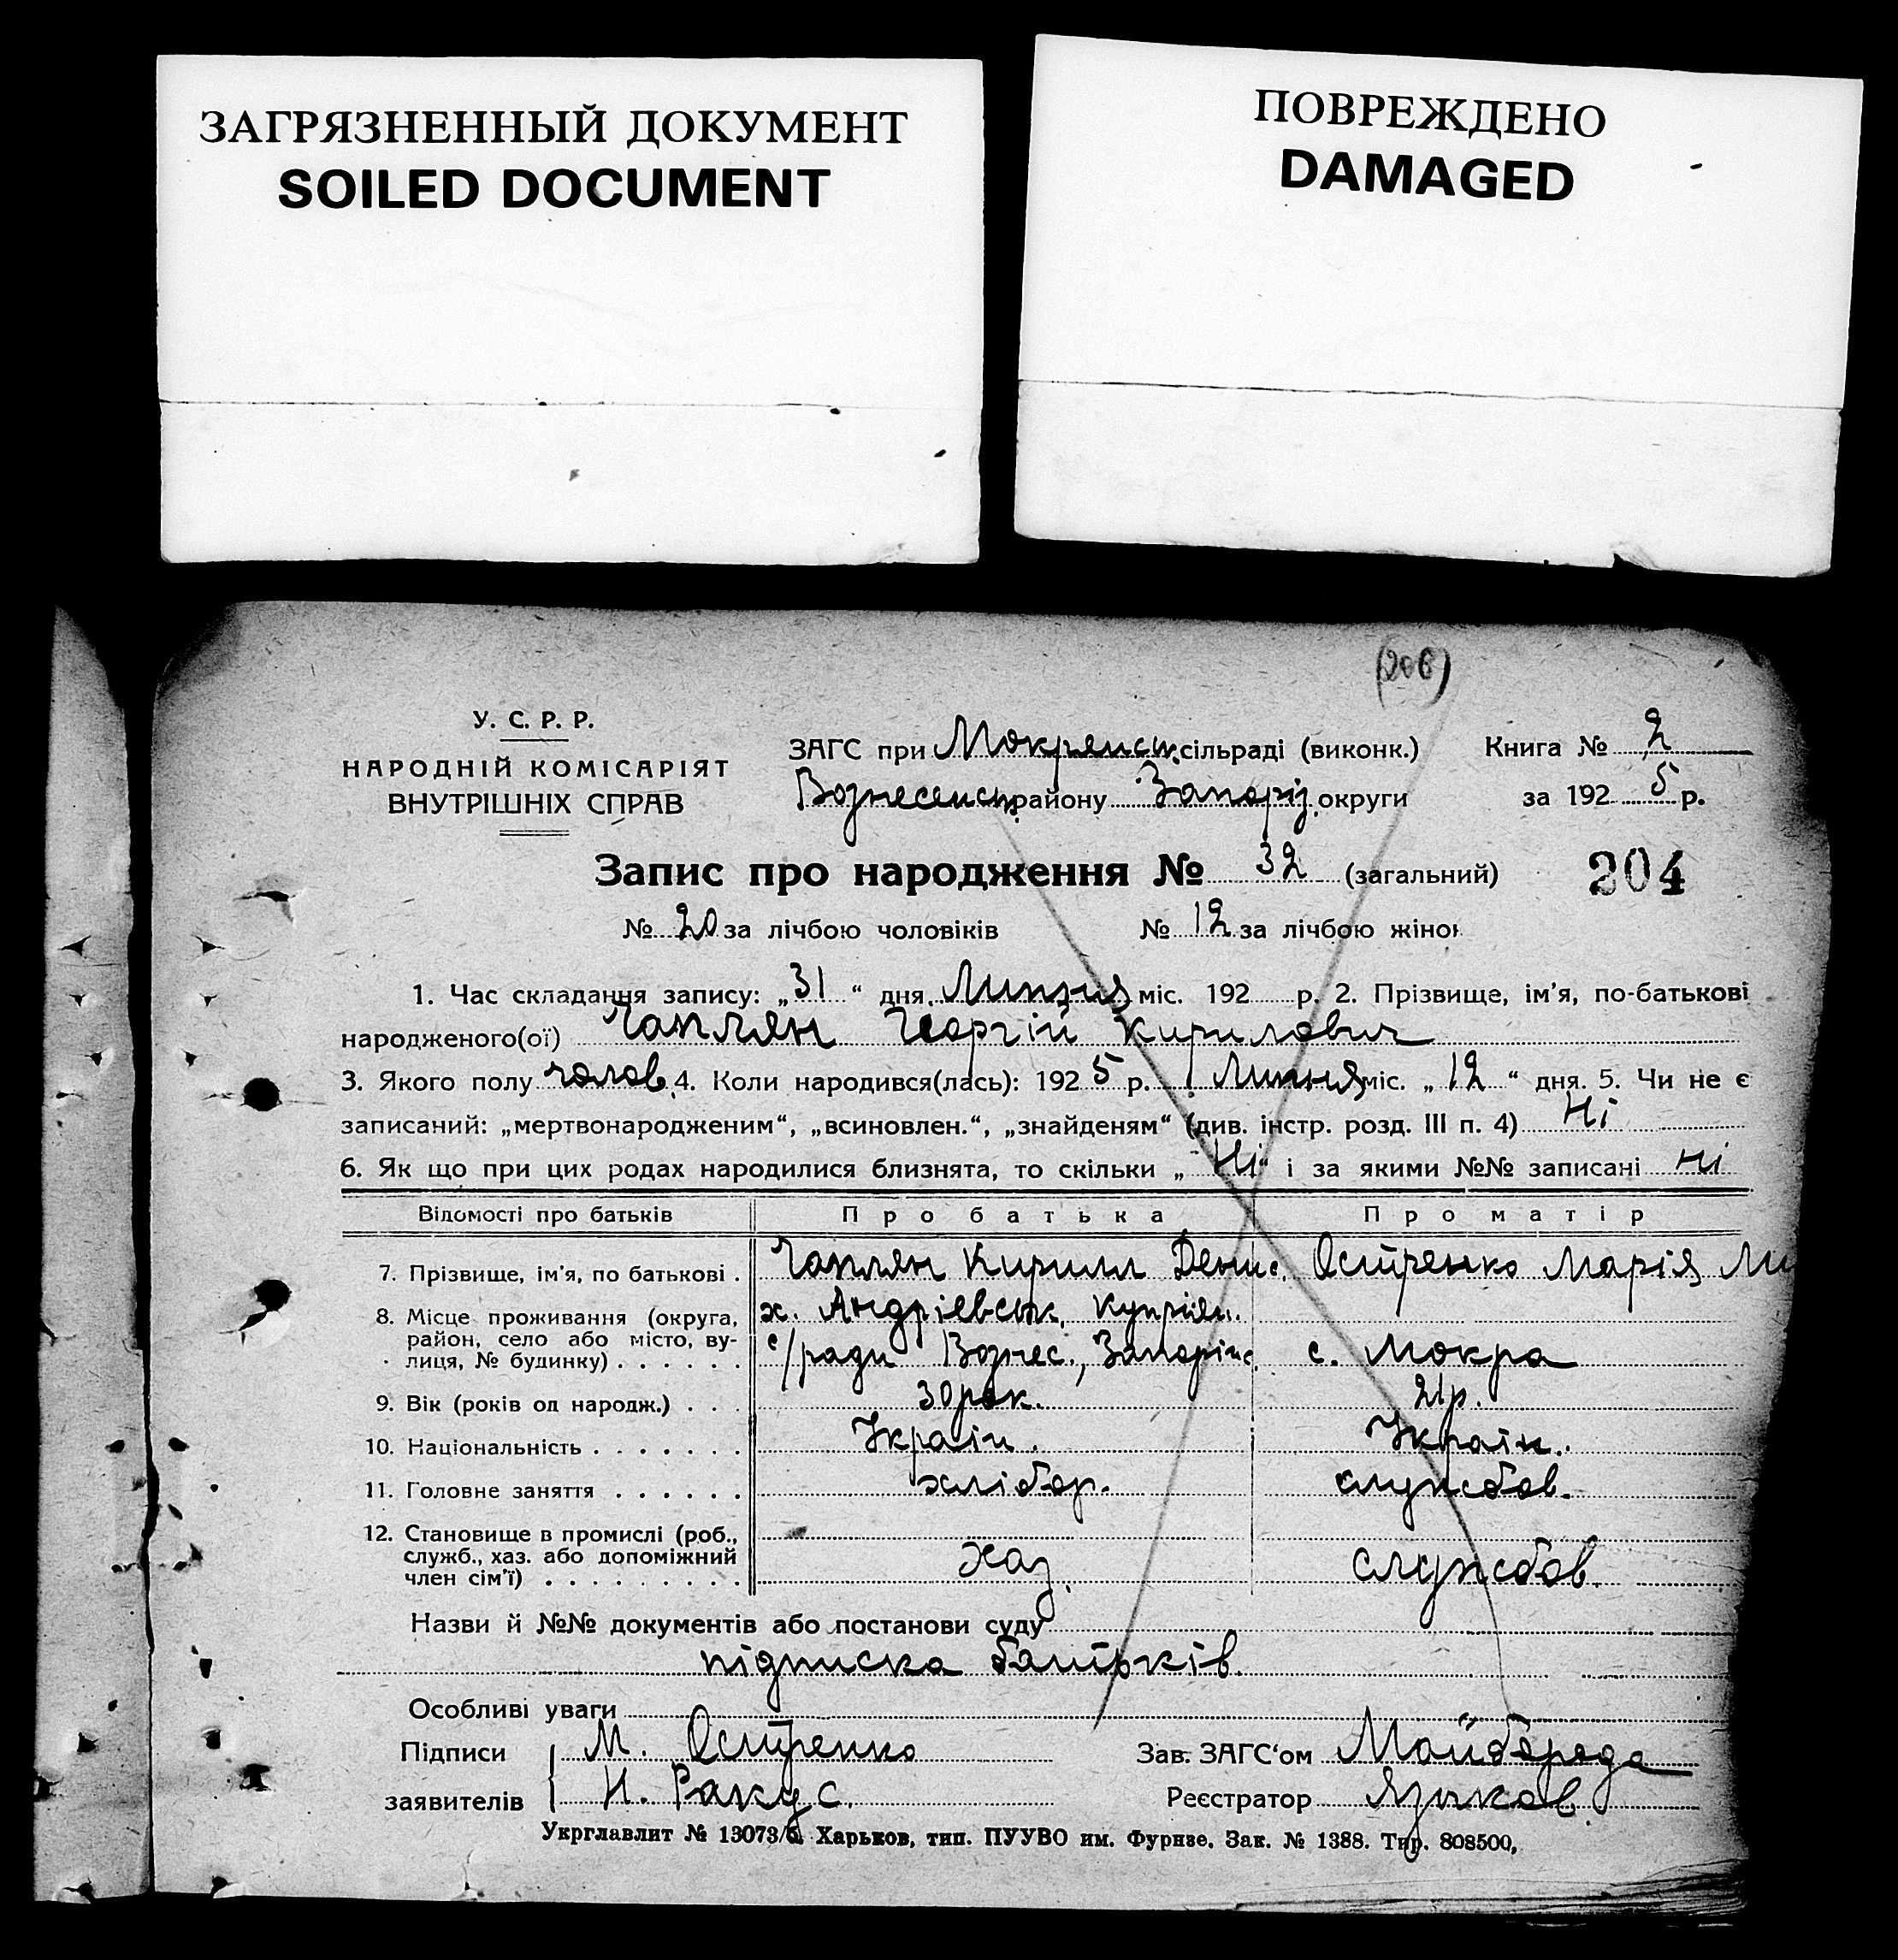 ЗАГРЯЗНЕННЫЙ ДОКУМЕНТ
SOILED DOCUMENT
ПОВРЕЖДЕНО
DAMAGED
(206)
У. С. Р. Р.
НАРОДНІЙ КОМІСАРІЯТ
ВНУТРІШНІХ СПРАВ
ЗАГС при Мокрянськ. сільраді (виконк.) Книга № 2
Вознесенськ. району Запоріз. округи за 192 5 р.
Запис про народження № 32 (загальний) 204
№ 20 за лічбою чоловіків № 12 за лічбою жінок
1. Час складання запису: „31“ дня Липня міс. 192 р. 2. Прізвище, ім’я, по-батькові
народженого(ої) Чаплян Георгій Кирилович
3. Якого полу чолов. 4. Коли народився(лась): 192 5 р. Липня міс. „12“ дня. 5. Чи не є
записаний: „мертвонародженим“, „всиновлен.“, „знайденям“ (див. інстр. розд. III п. 4) Ні
6. Як що при цих родах народилися близнята, то скільки „Ні“ і за якими №№ записані Ні
Відомості про батьків Про батька Про матір
7. Прізвище, ім’я, по батькові . Чаплян Кирилл Денис. Остренко Марія Ми
8. Місце проживання (округа, х. Андріевськ. Купріян.
район, село або місто, ву- с/ради Вознес., Запоріж. с. Мокра
лиця, № будинку) . . . . . .
9. Вік (років од народж.) . . . 30 рок. 21р.
10. Національність . . . . . . . Україн. Україн.
11. Головне заняття . . . . . . хлібор. службов.
12. Становище в промислі (роб.,
служб., хаз. або допоміжний Хаз. службов.
член сім’ї) . . . . . . . . .
Назви й №№ документів або постанови суду
підписка батьків.
Особливі уваги
Підписи М. Остренко Зав. ЗАГС‘ом Майборода
заявителів Н. Ракус. Реєстратор Язиков
Укрглавлит № 13073/б. Харьков, тип. ПУУВО им. Фрунзе. Зак. № 1388. Тир. 808500,